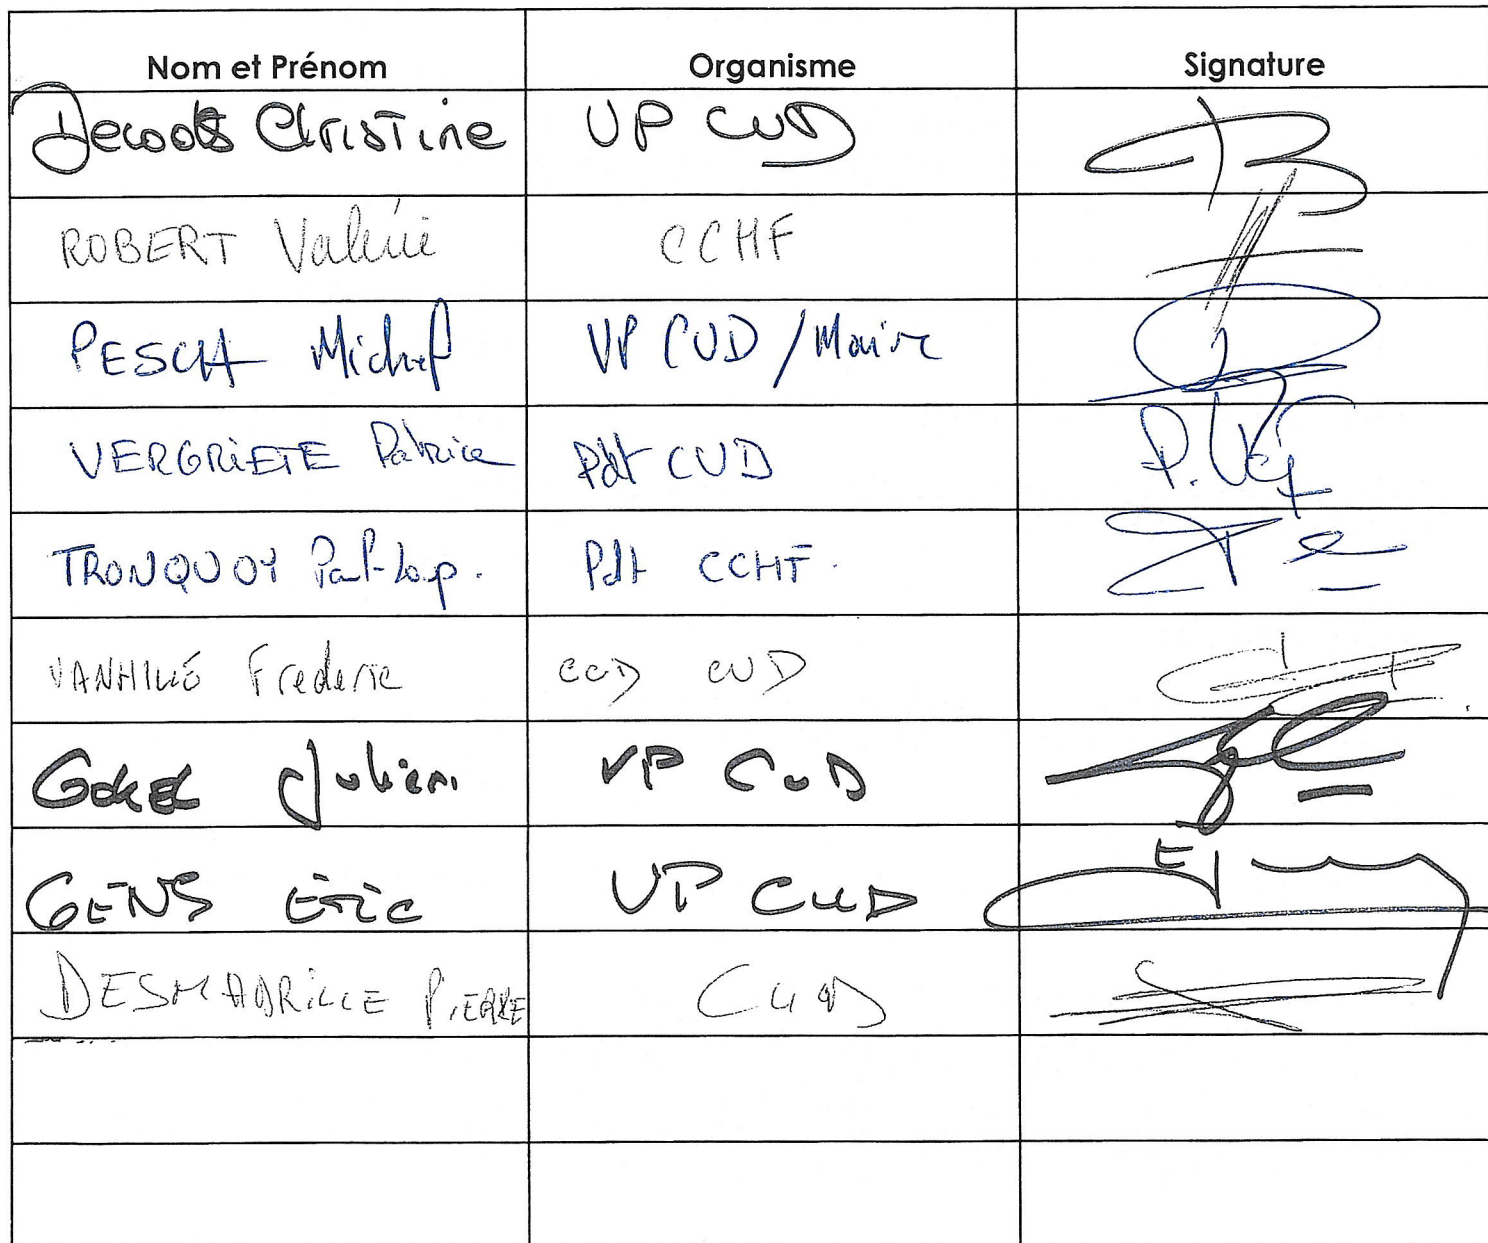 Nom et Prénom Organisme Signature
Decoodts Christine VP CUD
ROBERT Valérie CCHF
PESCH Michel VP CUD / Maire
VERGRIETE Patrice Pdt CUD P. Veg
TRONQUOY Paul-Loup. Pdt CCHF.
VANHILLE Frederic CCD CUD
GOKEL Julien VP CUD
GENS Eric VP CUD
DESMADRILLE PIERRE CUD